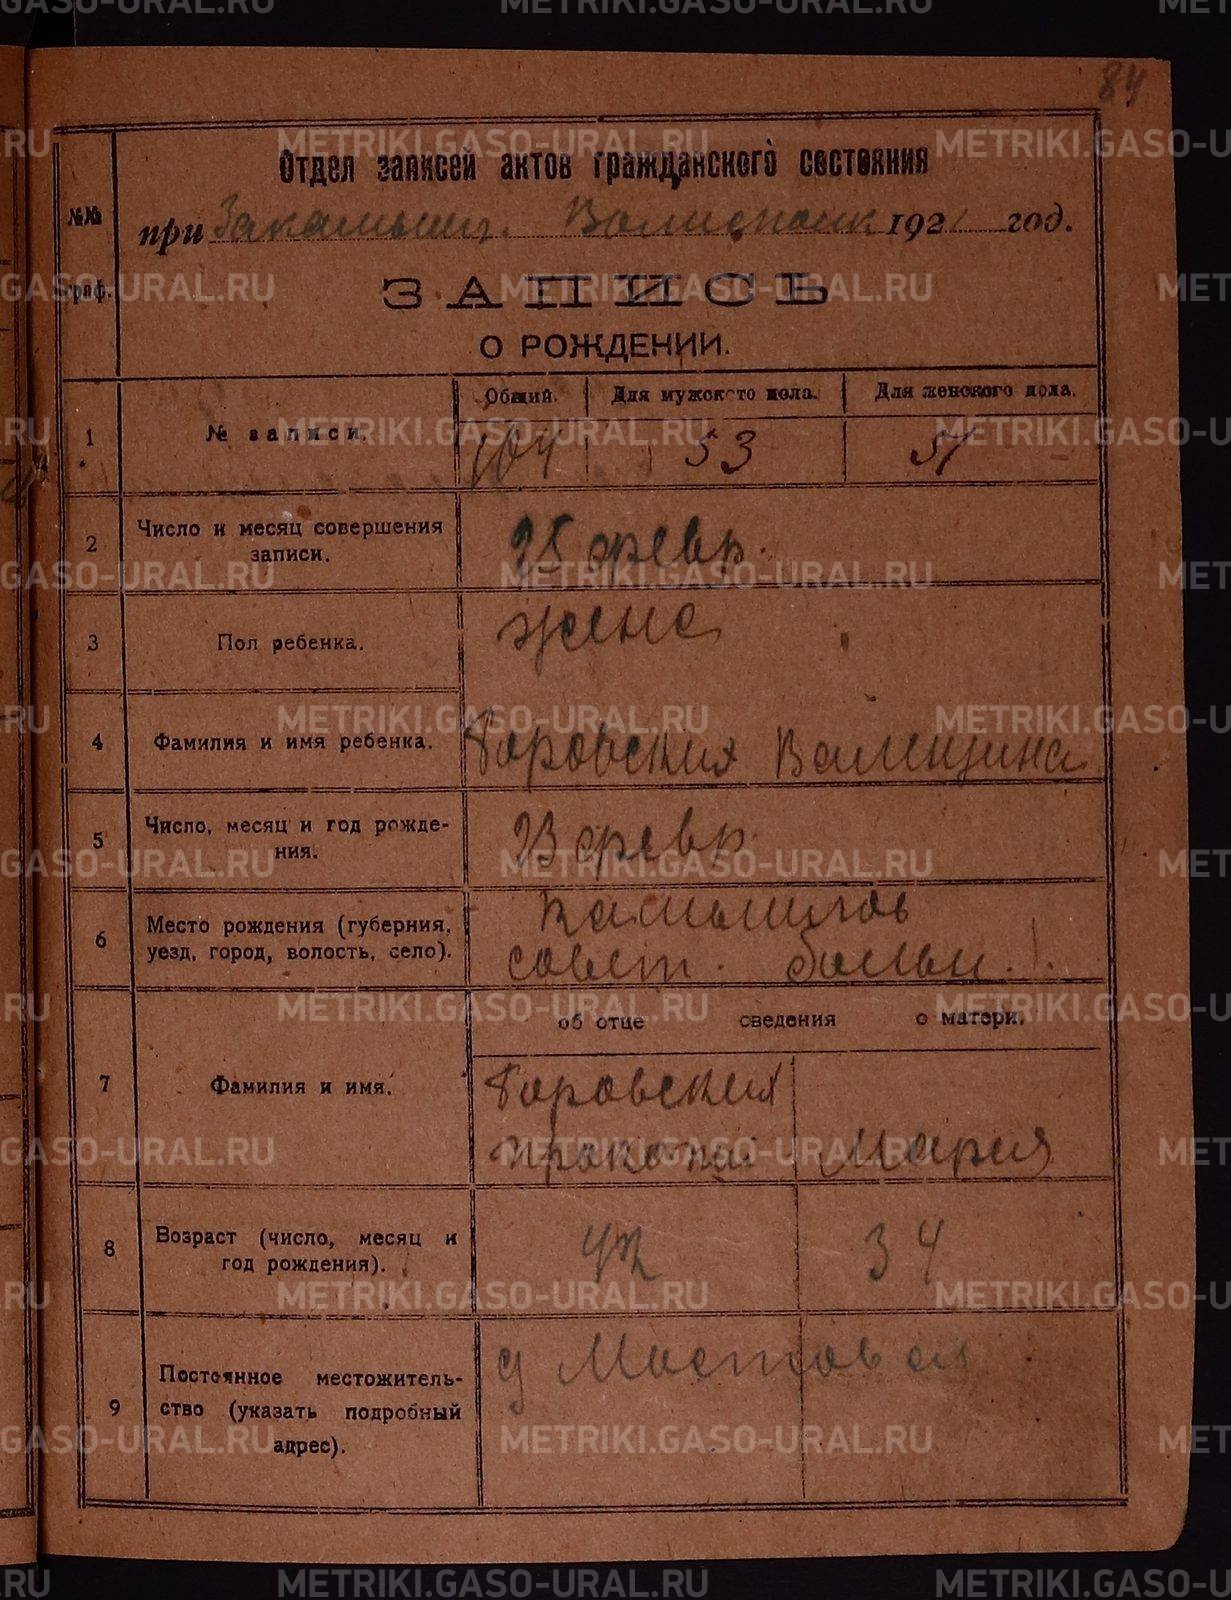 84
Отдел записей актов гражданского состояния
при Закамышл. Волисполк 1921 год.
№№ граф.
ЗАПИСЬ
О РОЖДЕНИИ.
Общий. Для мужского пола. Для женского пола.
1 № записи. 104 53 51
2 Число и месяц совершения записи. 25 февр.
3 Пол ребенка. женс
4 Фамилия и имя ребенка. Боровских Валентина
5 Число, месяц и год рождения. 23 февр.
6 Место рождения (губерния, уезд, город, волость, село). Камышлов
совет. больн.
об отце сведения о матери.
7 Фамилия и имя. Боровских
Прокопий Мария
8 Возраст (число, месяц и год рождения). 34
9 Постоянное местожительство (указать подробный адрес). д Мостовая
METRIKI.GASO-URAL.RU